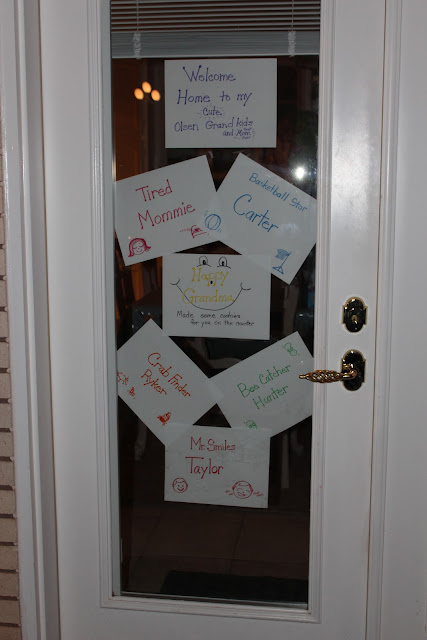 Welcome
Home to my
Cute
Olsen Grand kids
and Mom
Tired
Mommie
Basketball Star
Carter
Happy
Grandma
Made some cookies
for you on the counter
Crab Finder
Ryker
Bee Catcher
Hunter
Mr. Smiles
Taylor